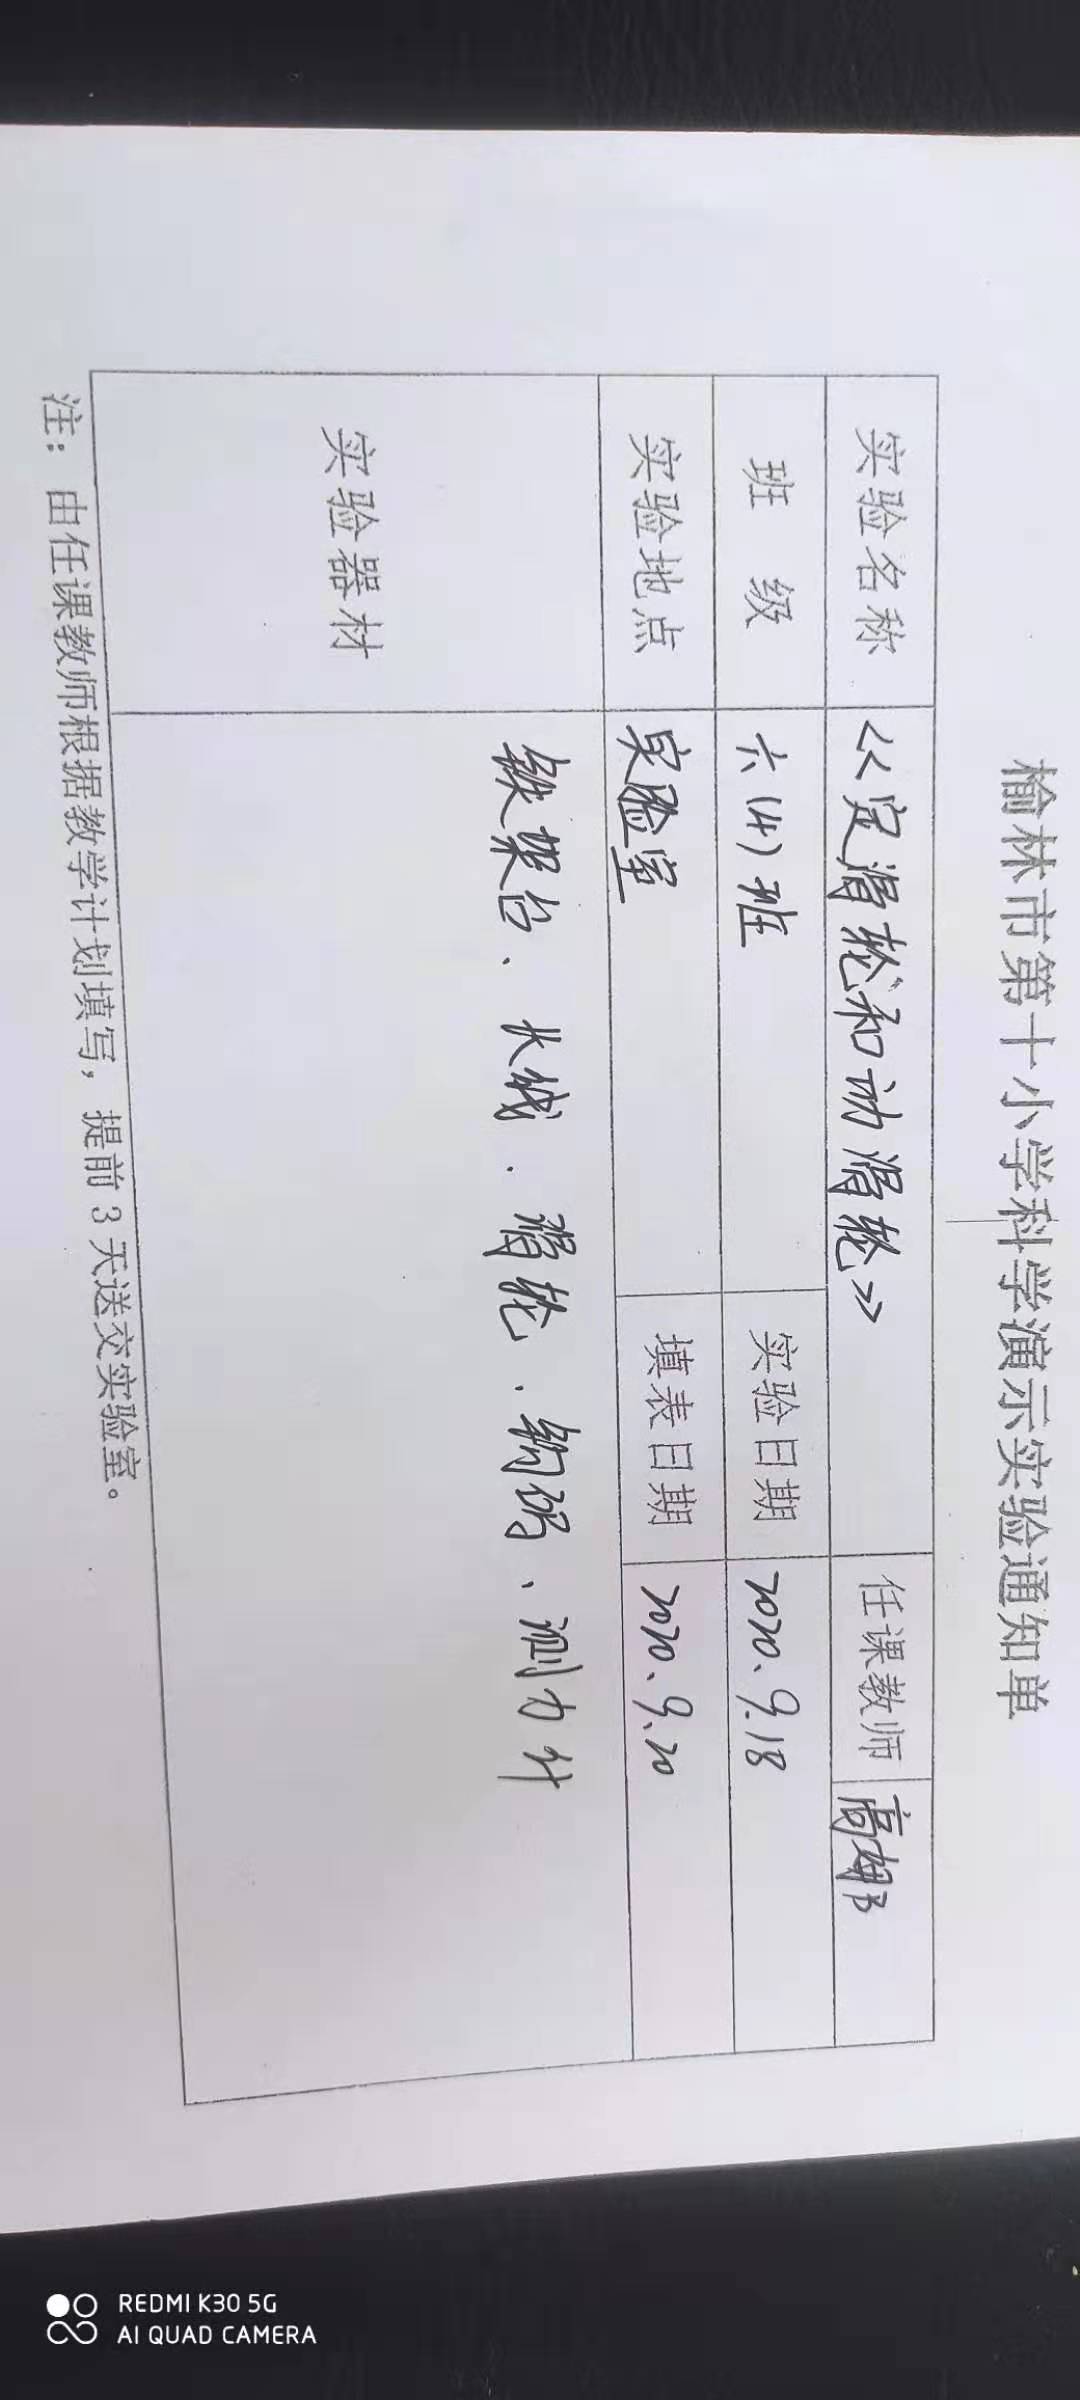 榆林市第十小学科学演示实验通知单
实验名称 《定滑轮和动滑轮》 任课教师 高娜
班 级 六(4)班 实验日期 2020、9.18
实验地点 实验室 填表日期 2020、9.20
实验器材 铁架台、长线、滑轮、钩码、测力计
注：由任课教师根据教学计划填写，提前3天送交实验室。
REDMI K30 5G
AI QUAD CAMERA